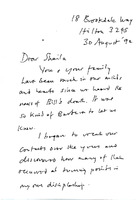 18 Brookdale Way
Hilton 3245
30 August '90
Dear Sheila
You & your family
have been much in our minds
and hearts since we heard the
news of Bill's death. It was
so kind of Barbara to let us
know.
I began to recall our
contacts over the years and
discovered how many of them
occurred at turning points in
my own discipleship.